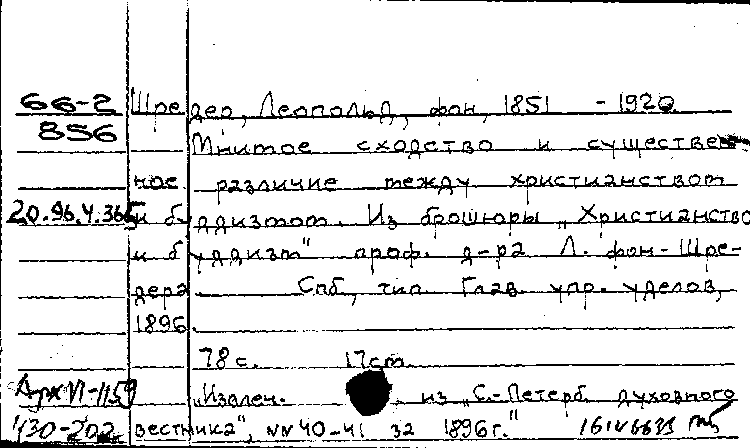 66-2 Шредер, Леопольд, фон, 1851 - 1920
856 Мнимое сходство и существен
ное различие между христианством
20.96.4.365 и буддизмом. Из брошюры „Христианство
и буддизм" проф. д-ра Л. фон-Шре-
дера Спб, тип. Глав. упр. уделов,
1896
78 с. 17 см
„Извлеч. из „С.-Петерб. духовного
430-202 вестника", №№ 40-41 за 1896 г."